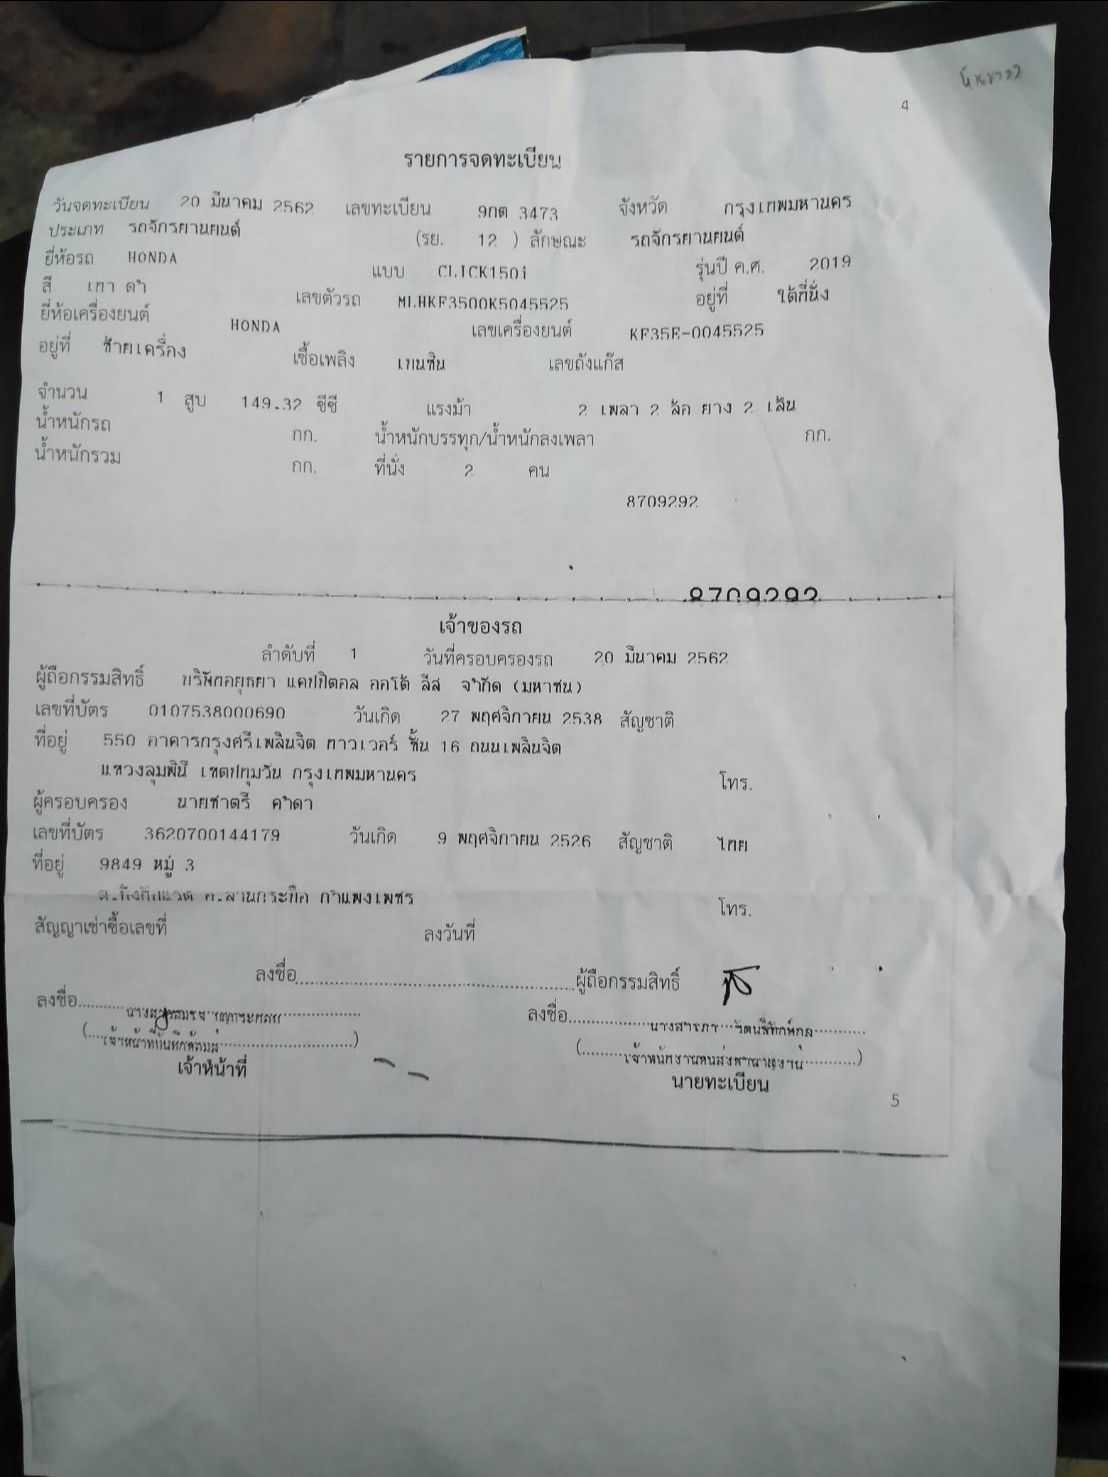 4
รายการจดทะเบียน
วันจดทะเบียน 20 มีนาคม 2562 เลขทะเบียน 9กต 3473 จังหวัด กรุงเทพมหานคร
ประเภท รถจักรยานยนต์ (รย. 12 ) ลักษณะ รถจักรยานยนต์
ยี่ห้อรถ HONDA แบบ CLICK150i รุ่นปี ค.ศ. 2019
สี เทา ดำ เลขตัวรถ MLHKF3500K5045525 อยู่ที่ ใต้ที่นั่ง
ยี่ห้อเครื่องยนต์ HONDA เลขเครื่องยนต์ KF35E-0045525
อยู่ที่ ซ้ายเครื่อง เชื้อเพลิง เบนซิน เลขถังแก๊ส
จำนวน 1 สูบ 149.32 ซีซี แรงม้า 2 เพลา 2 ล้อ ยาง 2 เส้น
น้ำหนักรถ กก. น้ำหนักบรรทุก/น้ำหนักลงเพลา กก.
น้ำหนักรวม กก. ที่นั่ง 2 คน
8709292
8709292
เจ้าของรถ
ลำดับที่ 1 วันที่ครอบครองรถ 20 มีนาคม 2562
ผู้ถือกรรมสิทธิ์ บริษัทอยุธยา แคปปิตอล ออโต้ ลีส จำกัด (มหาชน)
เลขที่บัตร 0107538000690 วันเกิด 27 พฤศจิกายน 2538 สัญชาติ
ที่อยู่ 550 อาคารกรุงศรีเพลินจิต ทาวเวอร์ ชั้น 16 ถนนเพลินจิต
แขวงลุมพินี เขตปทุมวัน กรุงเทพมหานคร โทร.
ผู้ครอบครอง นายชาตรี คำดา
เลขที่บัตร 3620700144179 วันเกิด 9 พฤศจิกายน 2526 สัญชาติ ไทย
ที่อยู่ 9849 หมู่ 3
อ.ลานกระบือ กำแพงเพชร โทร.
สัญญาเช่าซื้อเลขที่ ลงวันที่
ลงชื่อ ผู้ถือกรรมสิทธิ์
ลงชื่อ ลงชื่อ
เจ้าหน้าที่
นายทะเบียน
5